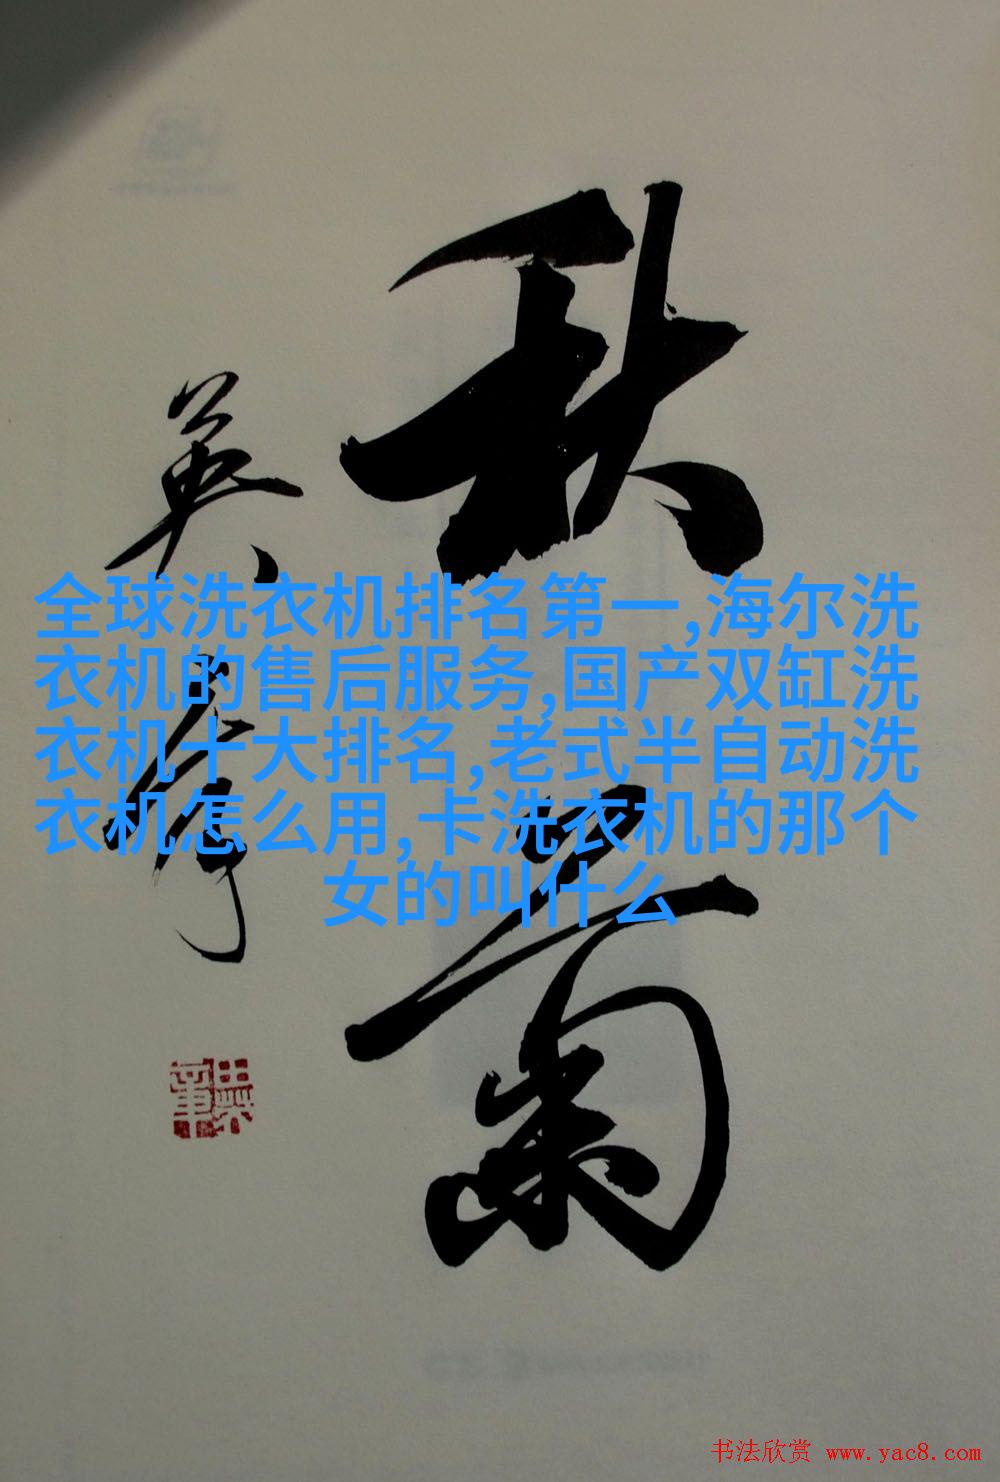 秋菊
英章
全球洗衣机排名第一,海尔洗
衣机的售后服务,国产双缸洗
衣机十大排名,老式半自动洗
衣机怎么用,卡洗衣机的那个
女的叫什么
书法欣赏 www.yac8.com